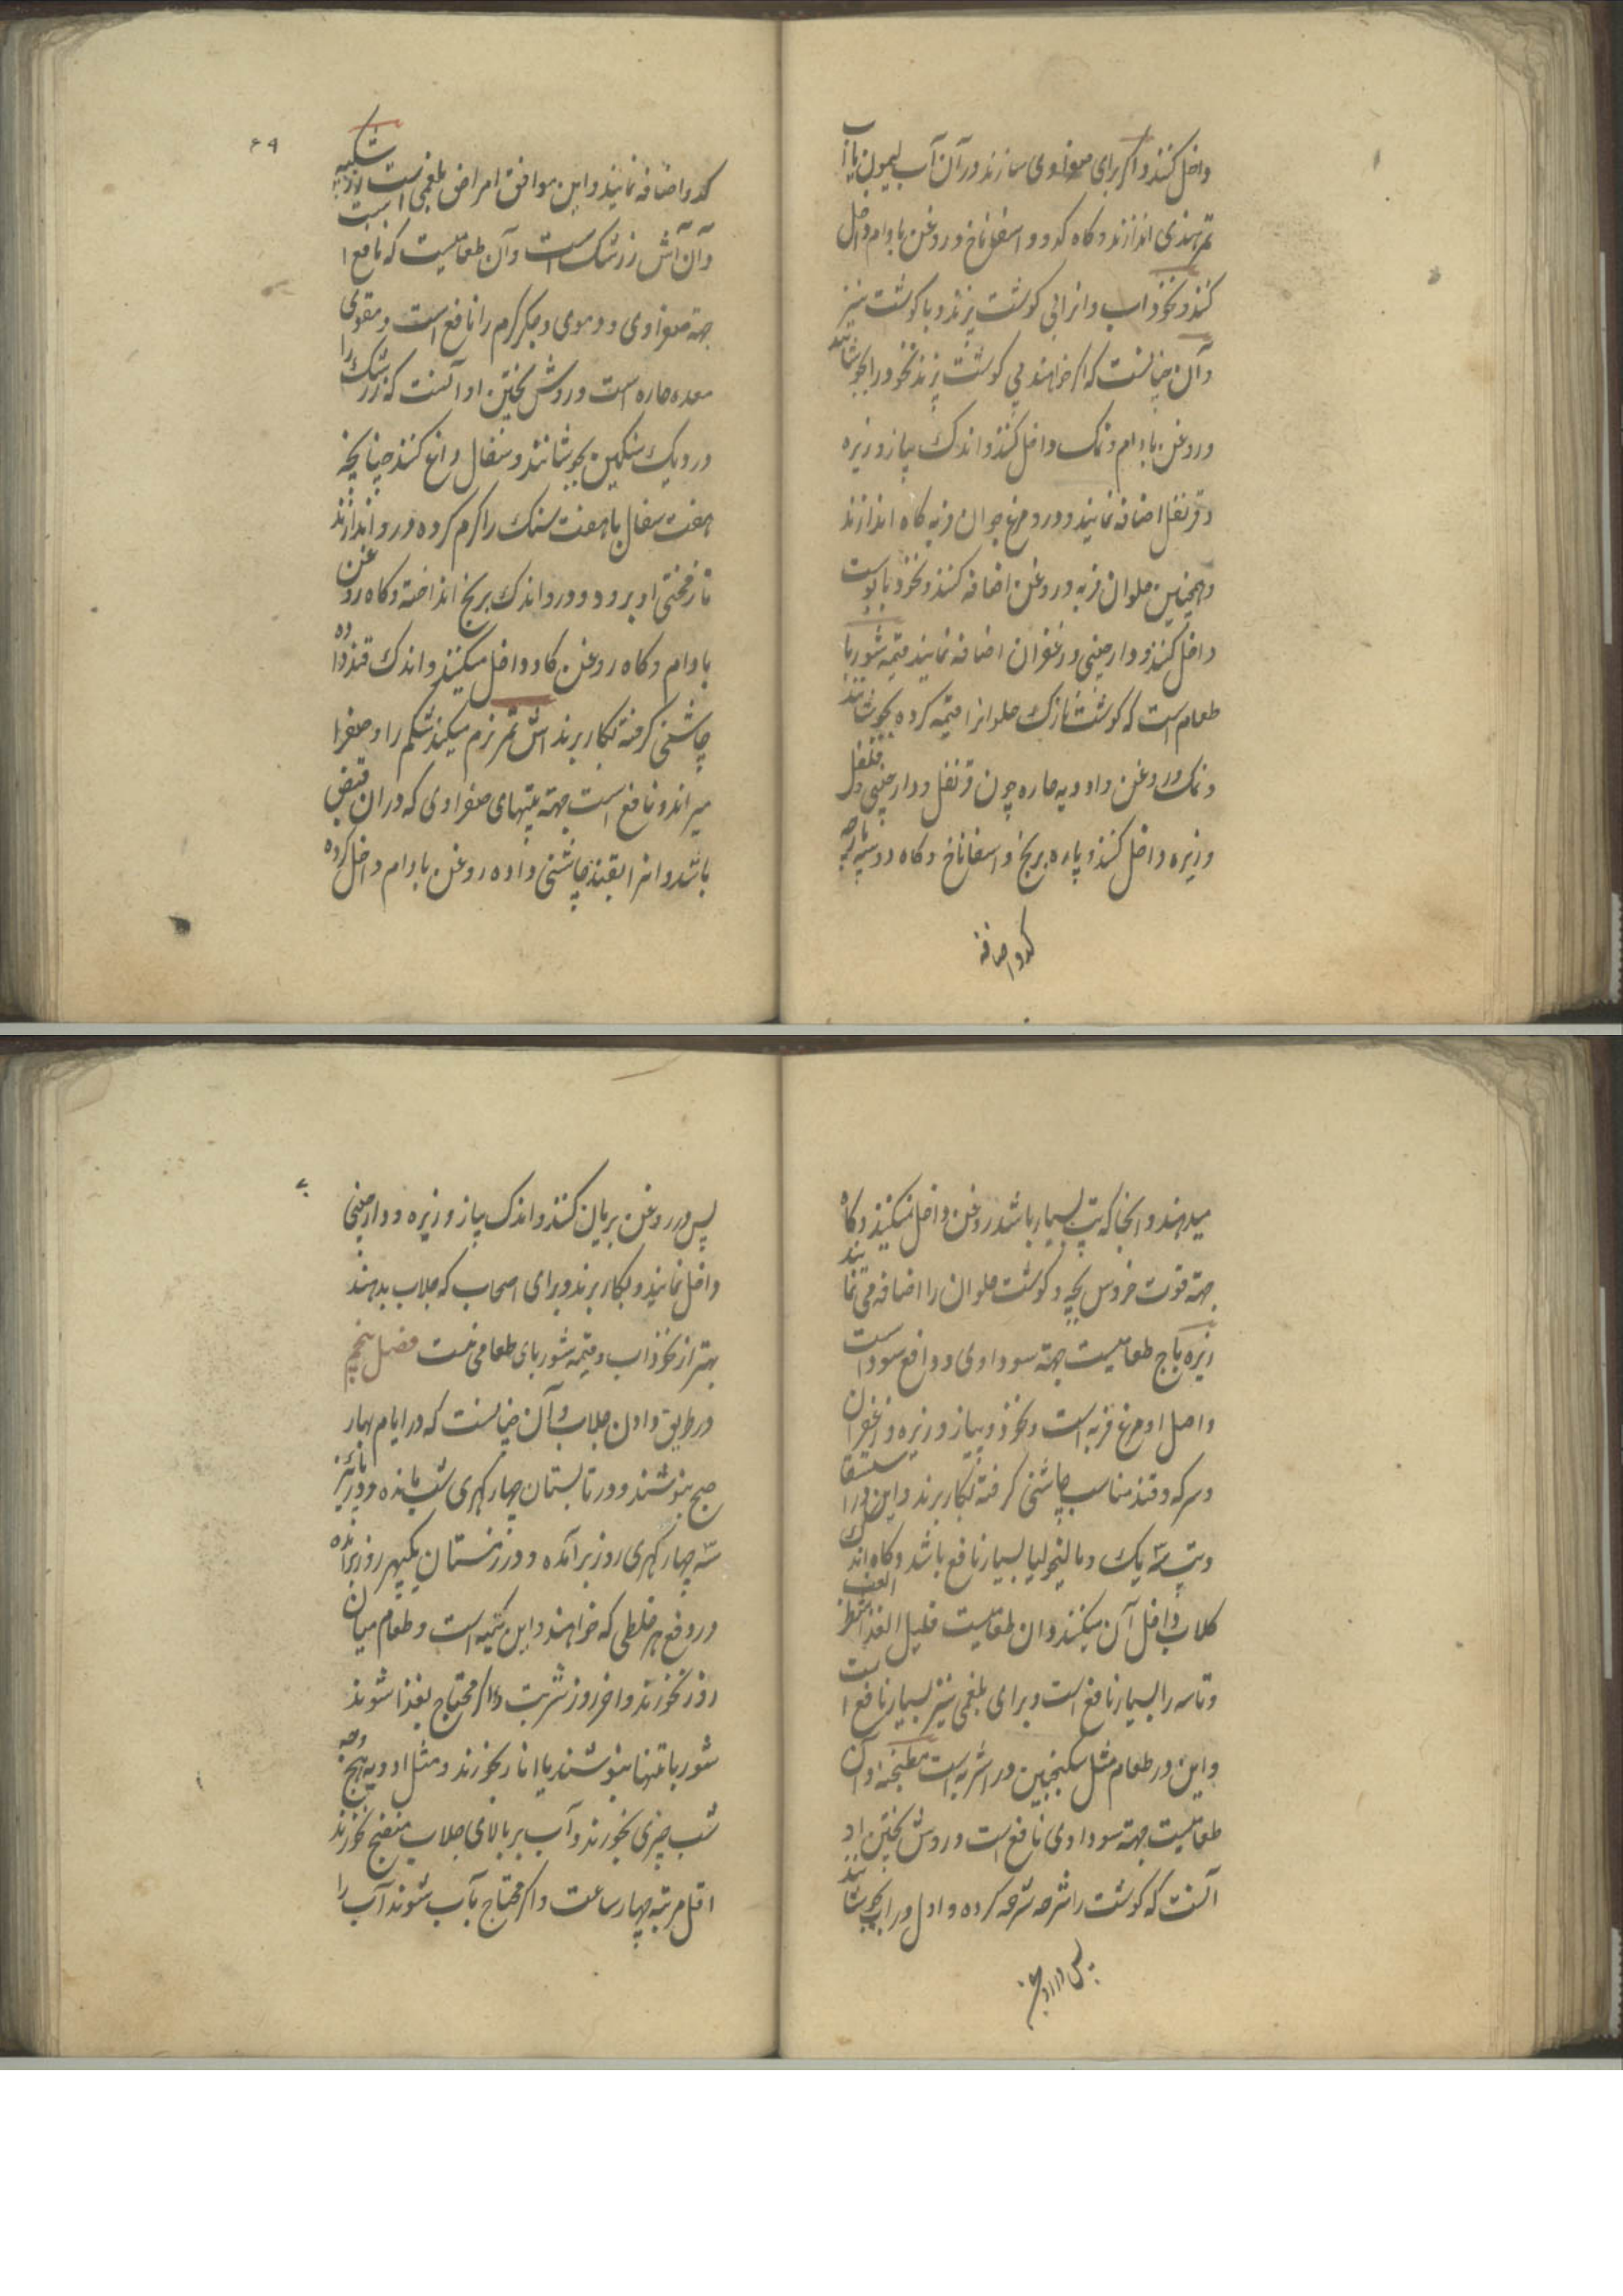 داخل کنند و اکر برای صفراوی سازند در آن آب لیمون یا آب
تمر هندی اندازند و کاه کدو و اسفاناخ و روغن بادام داخل
کنند و نخود اب و انرا بی کوشت پزند و با کوشت نیز
و آن چنانست که اکر خواهند بی کوشت پزند نخود را بجوشانند
و روغن بادام و نمک داخل کنند و اندک پیاز و زیره
و قرنفل اضافه نمایند و درو مرغ جوان فربه کاه اندازند
و همچنین حلوان فربه و روغن اضافه کنند و نخود با پوست
داخل کنند و دارچینی و زعفران اضافه نمایند قیمه شوربا
طعام است که کوشت نازک حلوانرا قیمه کرده بجوشانند
و نمک و روغن و ادویه حاره چون قرنفل و دارچینی و فلفل
و زیره داخل کنند و پاره برنج و اسفاناخ و کاه دو سه پارچه
کدو اضافه
۶۹
کدو اضافه نمایند و این موافق امراض بلغمی است زرشکیه
و آن آش زرشک است و آن طعامیست که نافع است
جهة صفراوی و دموی و جکر کرم را نافع است و مقوی
معده حاره است و روش پختن او آنست که زرشک را
در دیک سنکین بجوشانند و سفال داغ کنند چنانچه
هفت سفال یا هفت سنک را کرم کرده درو اندازند
تا زمختی او برود و درو اندک برنج انداخته و کاه روغن
بادام و کاه روغن کاو داخل میکنند و اندک قند داده
چاشنی کرفته بکار برند اش تمر نرم میکند شکم را و صفرا
میراند و نافع است جهة تپهای صفراوی که در ان قبض
باشد و انرا بقند چاشنی داده روغن بادام داخل کرده
میدهند و انجا که تپ بسیار باشد روغن داخل نمیکنند و کاه
جهة قوت خروس بچه و کوشت حلوان را اضافه می نمایند
زیره باج طعامیست جهة سوداوی و دافع سودا است
و اصل او مرغ فربه است و نخود و پیاز و زیره و زعفران
و سرکه و قند مناسب چاشنی کرفته بکار برند و این استسقا را
و تپ سه یک و مالیخولیا بسیار نافع باشد و کاه اندک
کلاب داخل آن میکنند و ان طعامیست قلیل الغذا
و تاسه را بسیار نافع است و برای بلغمی نیز بسیار نافع است
و این در طعام مثل سکنجبین در اشربه است مطنجنه و آن
طعامیست جهة سوداوی نافع است و روش پختن او
آنست که کوشت را شرحه شرحه کرده و اول در اب بجوشانند
پس در روغن
۷۰
پس در روغن بریان کنند و اندک پیاز و زیره و دارچینی
داخل نمایند و بکار برند و برای اصحاب که جلاب بدهند
بهتر از نخود اب و قیمه شوربای طعامی نیست فصل پنجم
در طریق دادن جلاب و آن چنانست که در ایام بهار
صبح بنوشند و در تابستان چهار کهری شب مانده و در پائیز
سه چهار کهری روز برآمده و در زمستان یکپهر روز برآمده
در دفع هر خلطی که خواهند و این کلیه است و طعام میان
روز نخورند و اخر روز شربت و اکر محتاج بغذا شوند
شوربا تنها بنوشند یا انار بخورند و مثل ادویه هیچ وجه
شب چیزی نخورند و آب بر بالای جلاب منضج نخورند
اقل مرتبه چهار ساعت و اکر محتاج بآب شوند آب را